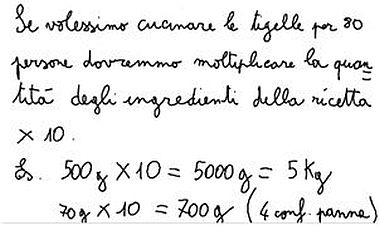 Se volessimo cucinare le tigelle per 80
persone dovremmo moltiplicare la quan=
tità degli ingredienti della ricetta
× 10.
Es. 500g × 10 = 5000g = 5 Kg
70g × 10 = 700g (4 conf. panna)